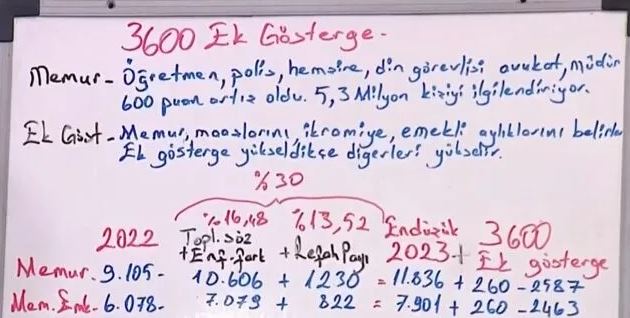 3600 Ek Gösterge-
Memur- Öğretmen, polis, hemşire, din görevlisi avukat, müdür
600 puan artış oldu. 5,3 Milyon kişiyi ilgilendiriyor.
Ek Göst- Memur, maaşlarını, ikramiye, emekli aylıklarını belirler
Ek gösterge yükseldikçe diğerleri yükselir.
%30
%16,48 %13,52 Endüşük 3600
2022 Topl. söz
+Enf.fark + Refah Payı 2023+ Ek gösterge
Memur. 9.105- 10.606 + 1230 = 11.836 + 260 - 2587
Mem. Emk- 6.078- 7.079 + 822 = 7.901 + 260 - 2463